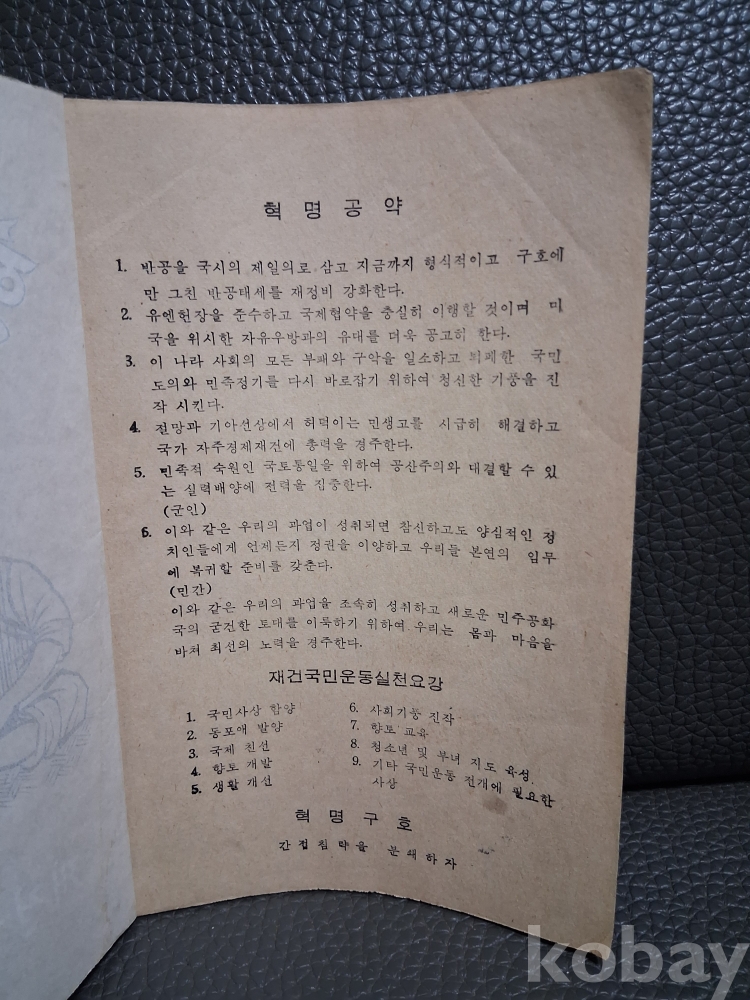 혁 명 공 약
1. 반공을 국시의 제일의로 삼고 지금까지 형식적이고 구호에
만 그친 반공태세를 재정비 강화한다.
2. 유엔헌장을 준수하고 국제협약을 충실히 이행할 것이며 미
국을 위시한 자유우방과의 유대를 더욱 공고히 한다.
3. 이 나라 사회의 모든 부패와 구악을 일소하고 퇴폐한 국민
도의와 민족정기를 다시 바로잡기 위하여 청신한 기풍을 진
작 시킨다.
4. 절망과 기아선상에서 허덕이는 민생고를 시급히 해결하고
국가 자주경제재건에 총력을 경주한다.
5. 민족적 숙원인 국토통일을 위하여 공산주의와 대결할 수 있
는 실력배양에 전력을 집중한다.
(군인)
6. 이와 같은 우리의 과업이 성취되면 참신하고도 양심적인 정
치인들에게 언제든지 정권을 이양하고 우리들 본연의 임무
에 복귀할 준비를 갖춘다.
(민간)
이와 같은 우리의 과업을 조속히 성취하고 새로운 민주공화
국의 굳건한 토대를 이룩하기 위하여 우리는 몸과 마음을
바쳐 최선의 노력을 경주한다.
재건국민운동실천요강
1. 국민사상 함양
2. 동포애 발양
3. 국제 친선
4. 향토 개발
5. 생활 개선
6. 사회기능 진작
7. 향토 교육
8. 청소년 및 부녀 지도 육성
9. 기타 국민운동 전개에 필요한
사상
혁 명 구 호
간접침략을 분쇄하자
kobay